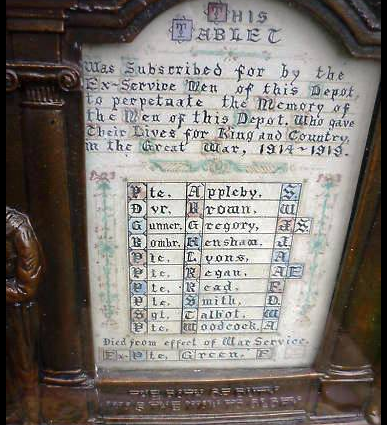 This
Tablet
Was Subscribed for by the
Ex-Service Men of this Depot,
to perpetuate the Memory of
the Men of this Depot. Who gave
Their Lives for King and Country,
in the Great War, 1914-1919.
Pte. Appleby, S.
Dvr. Brown, W
Gunner. Gregory, J.S.
Bombr. Henshaw, J.
Pte. Lyons, A
Pte. Regan, A E
Pte. Read, F.
Pte. Smith, D.
Sgt. Talbot, W
Pte. Woodcock, A
Died from effect of War Service.
Ex-Pte, Green, F